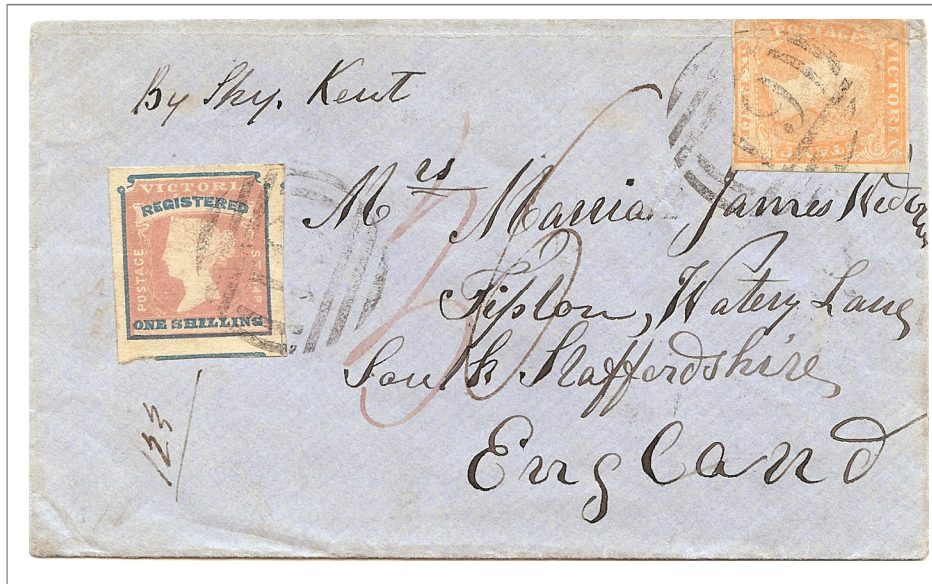 By Shp. Kent
VICTORIA
REGISTERED
POSTAGE
STAMP
ONE SHILLING
POSTAGE
VICTORIA
6
Mrs Maria James
Tipton, Watery Lane
South Staffordshire,
England
123